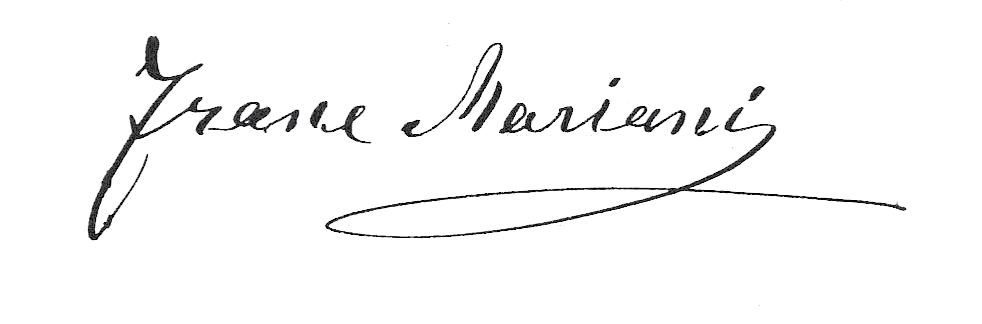 Frane Mariani